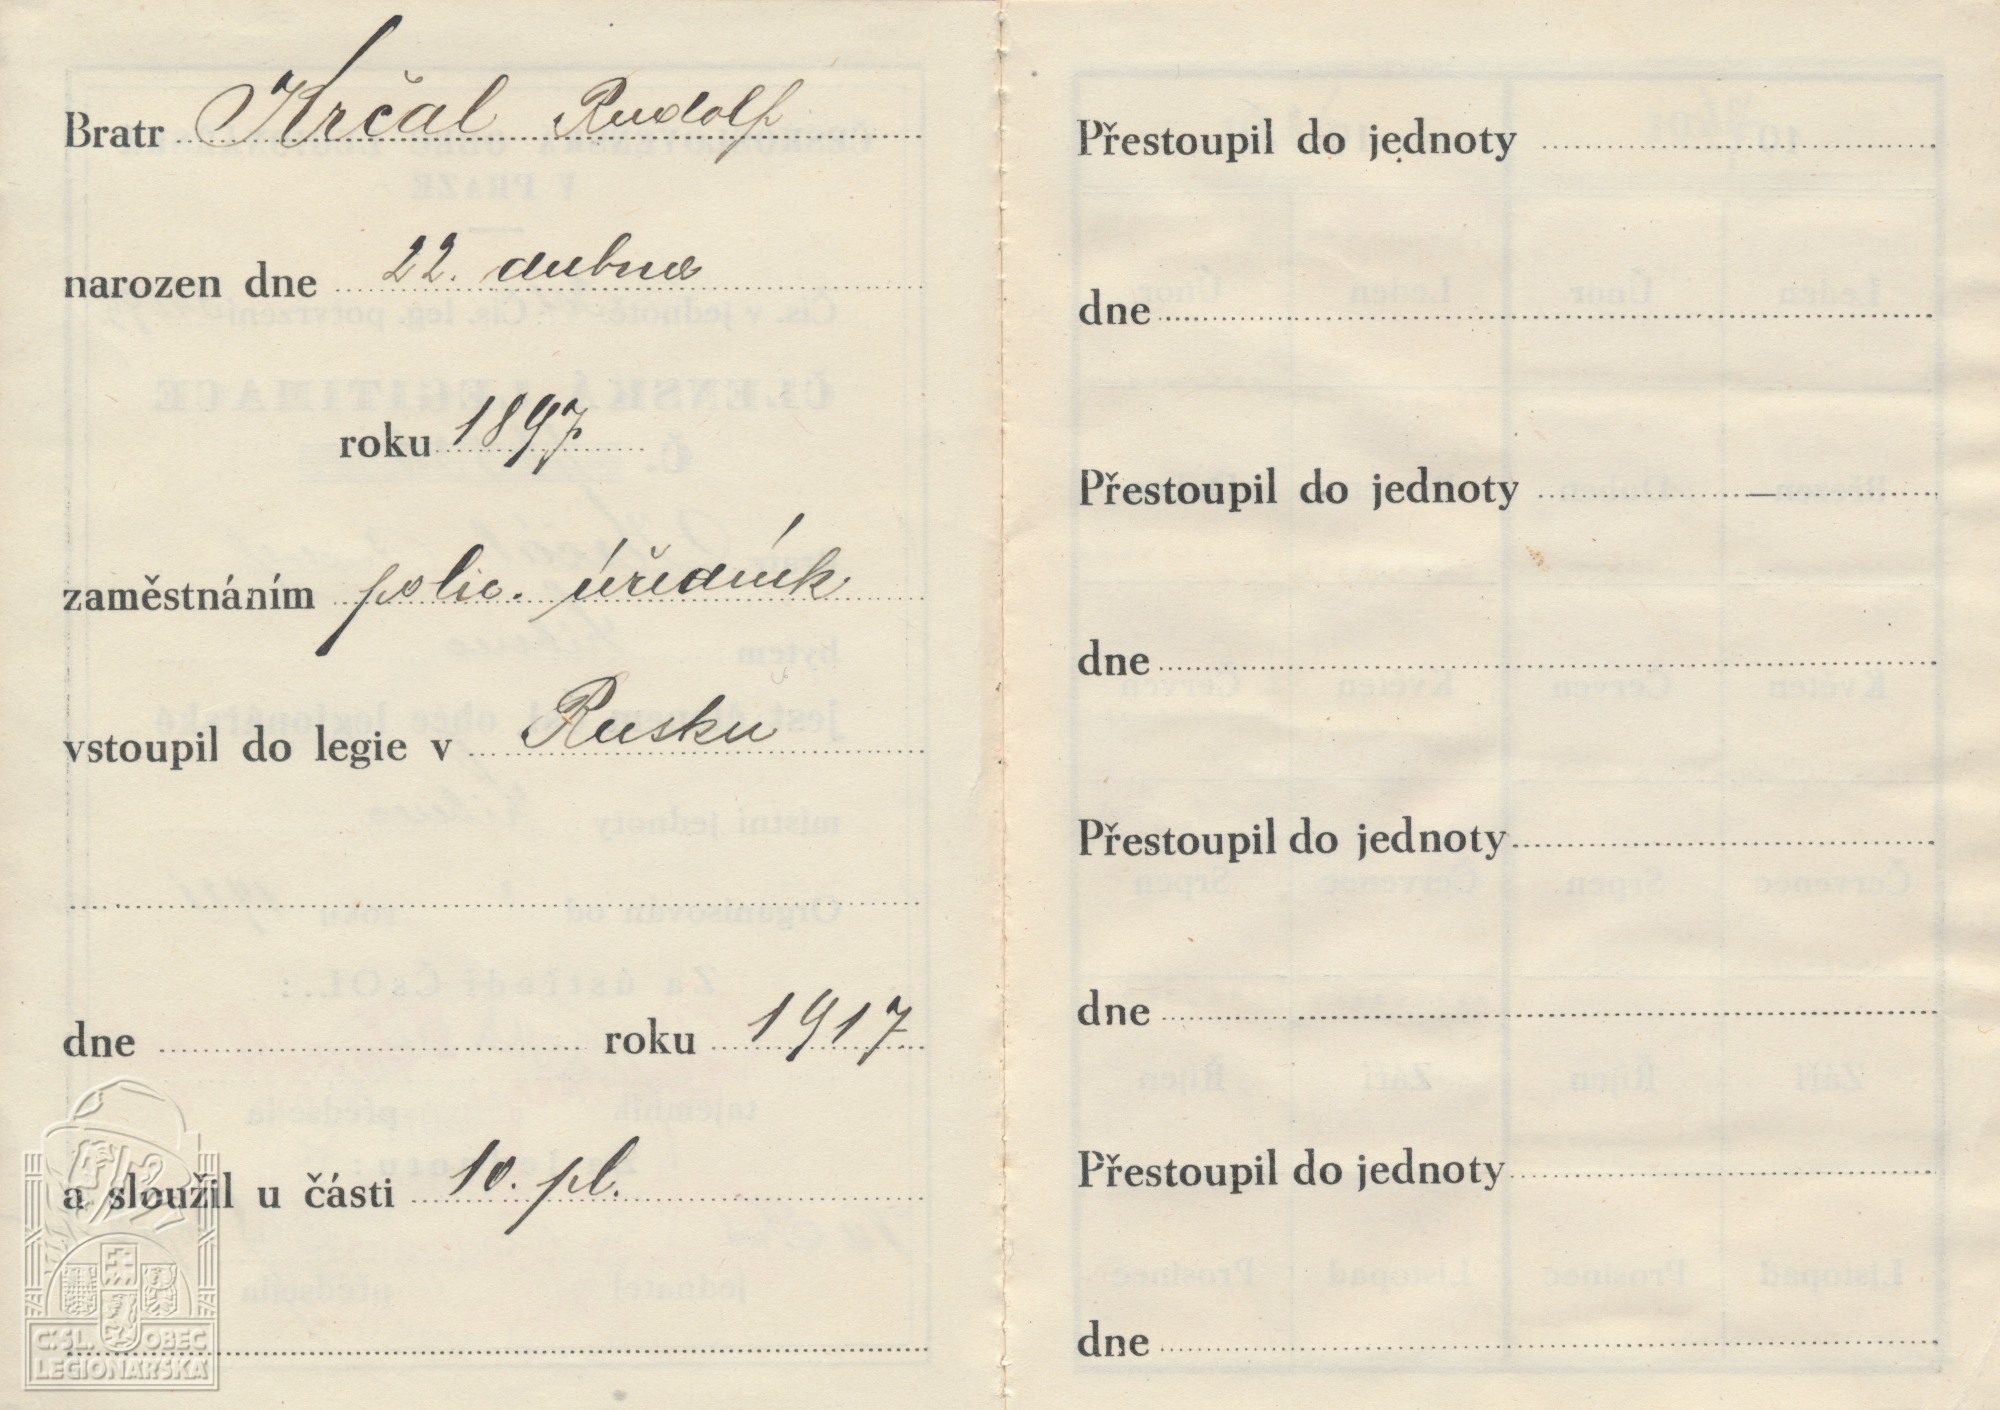 Bratr Krčal Rudolf
narozen dne 22. dubna
roku 1897
zaměstnáním polic. úředník
vstoupil do legie v Rusku
dne roku 1917
a sloužil u části 10. pl.
Č.SL. OBEC
LEGIONÁŘSKÁ
Přestoupil do jednoty
dne
Přestoupil do jednoty
dne
Přestoupil do jednoty
dne
Přestoupil do jednoty
dne